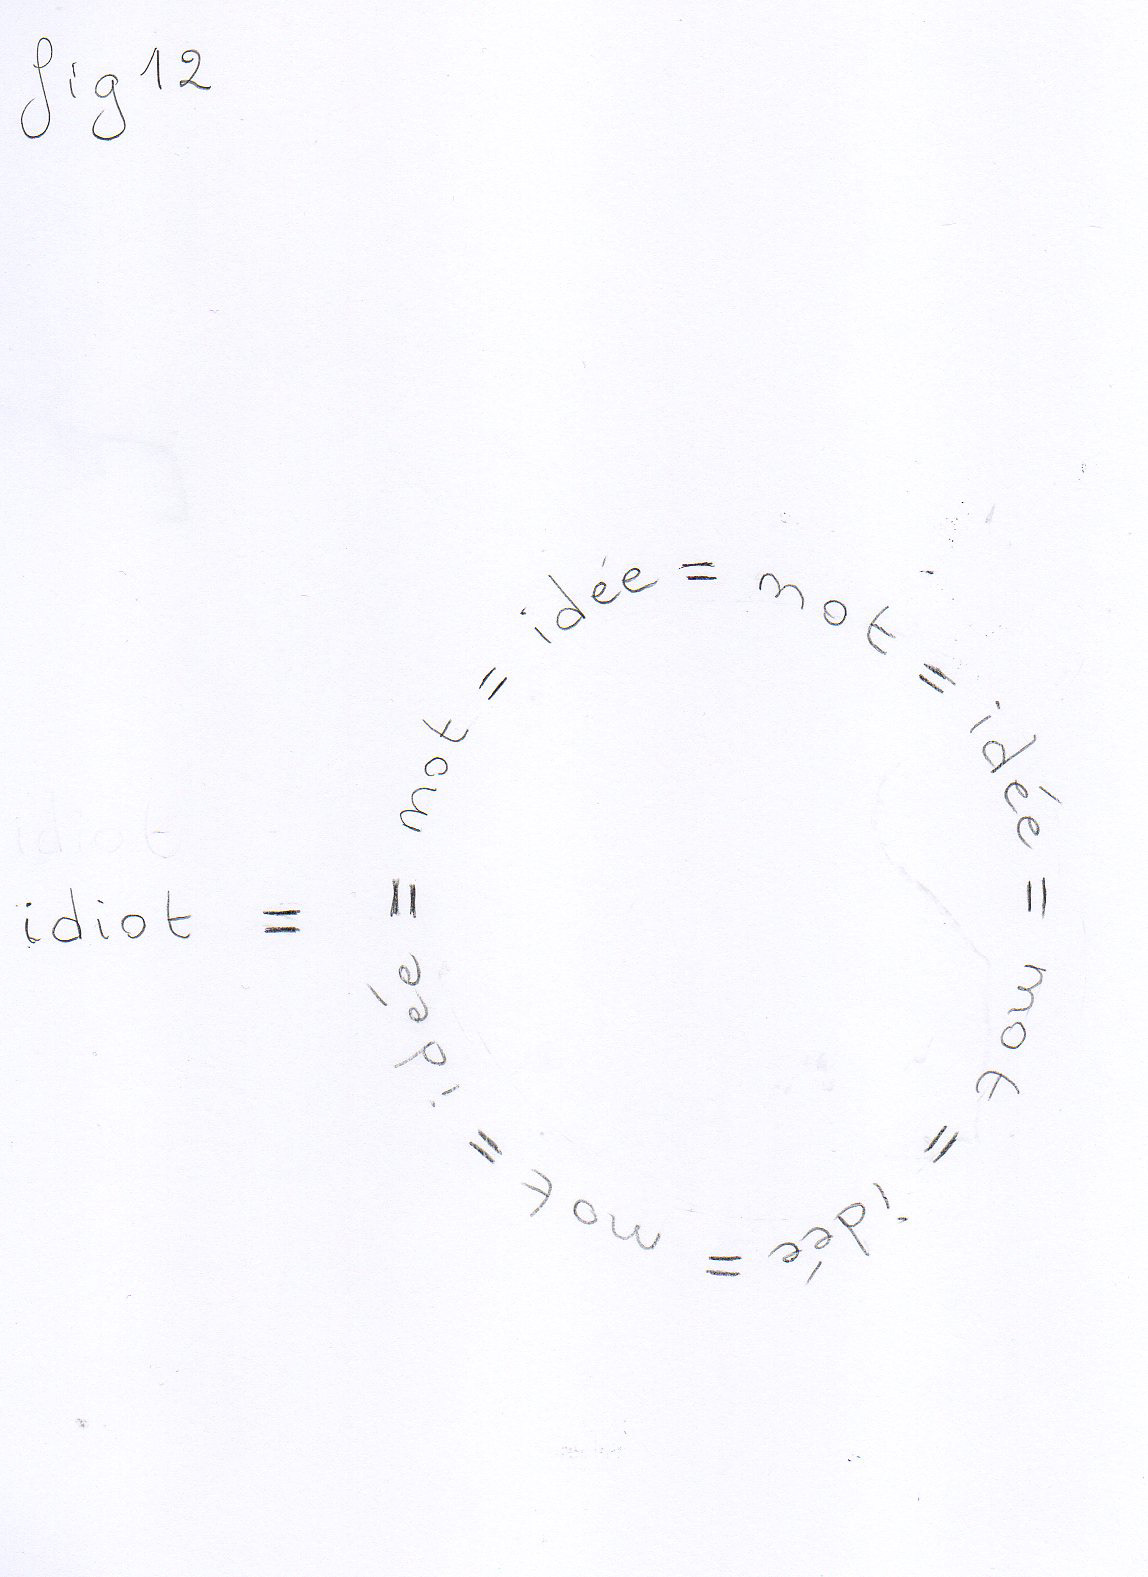 fig 12
idiot =
mot = idée = mot = idée = mot = idée = mot = idée =